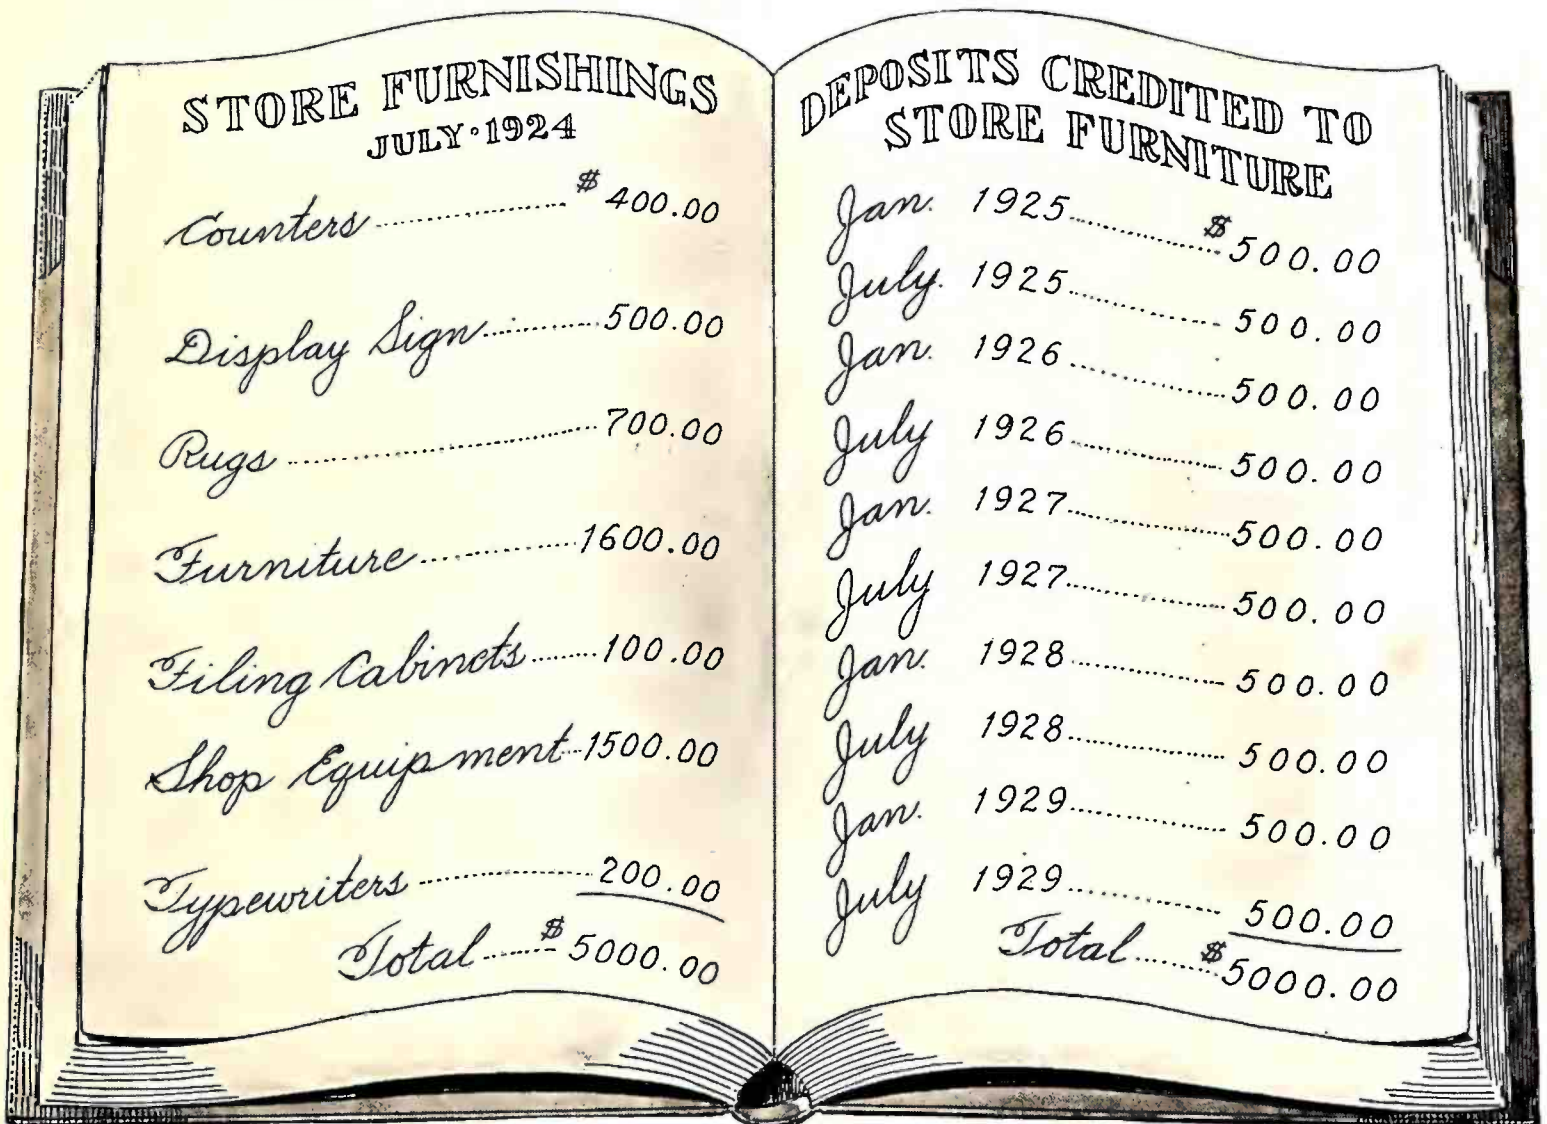 STORE FURNISHINGS
JULY·1924
Counters $ 400.00
Display Sign 500.00
Rugs 700.00
Furniture 1600.00
Filing Cabinets 100.00
Shop Equipment 1500.00
Typewriters 200.00
Total $ 5000.00
DEPOSITS CREDITED TO
STORE FURNITURE
Jan. 1925 $ 500.00
July. 1925 500.00
Jan. 1926 500.00
July 1926 500.00
Jan. 1927 500.00
July 1927 500.00
Jan. 1928 500.00
July 1928 500.00
Jan. 1929 500.00
July 1929 500.00
Total $ 5000.00